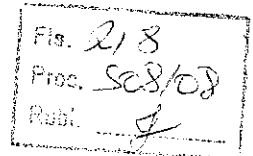 Fls. 218
Proc. 508/08
Rubr.